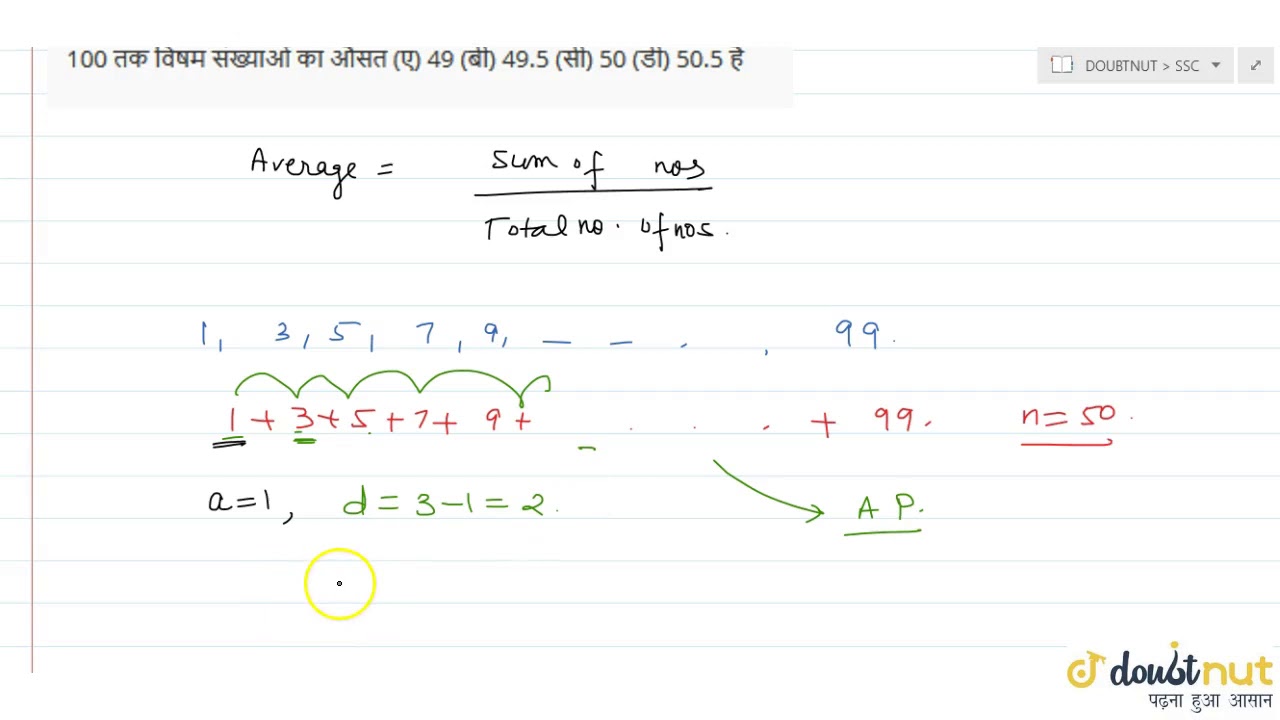 100 तक विषम संख्याओं का औसत (ए) 49 (बी) 49.5 (सी) 50 (डी) 50.5 है
DOUBTNUT > SSC
Average = sum of nos
Total no. of nos.
1, 3, 5, 7, 9, _ _ . , 99.
1 + 3 + 5 + 7 + 9 + _ . . . + 99. n = 50.
a = 1, d = 3 - 1 = 2. A P.
doubtnut
पढ़ना हुआ आसान